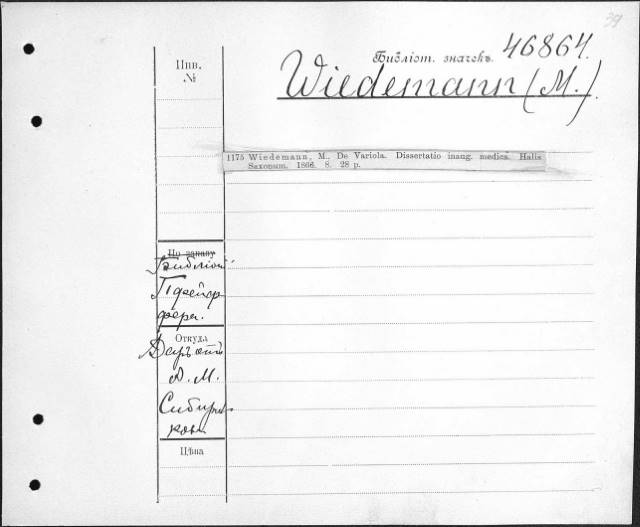 39
Инв.
№
Библіот. значекъ. 46864.
Wiedemann (M.).
1175 Wiedemann, M., De Variola. Dissertatio inaug. medica. Halis
Saxonum. 1866. 8. 28 p.
По заказу
Библіот
Пфейф
фера.
Откуда
Даръ отъ
А. М.
Сибиря-
кова
Цѣна